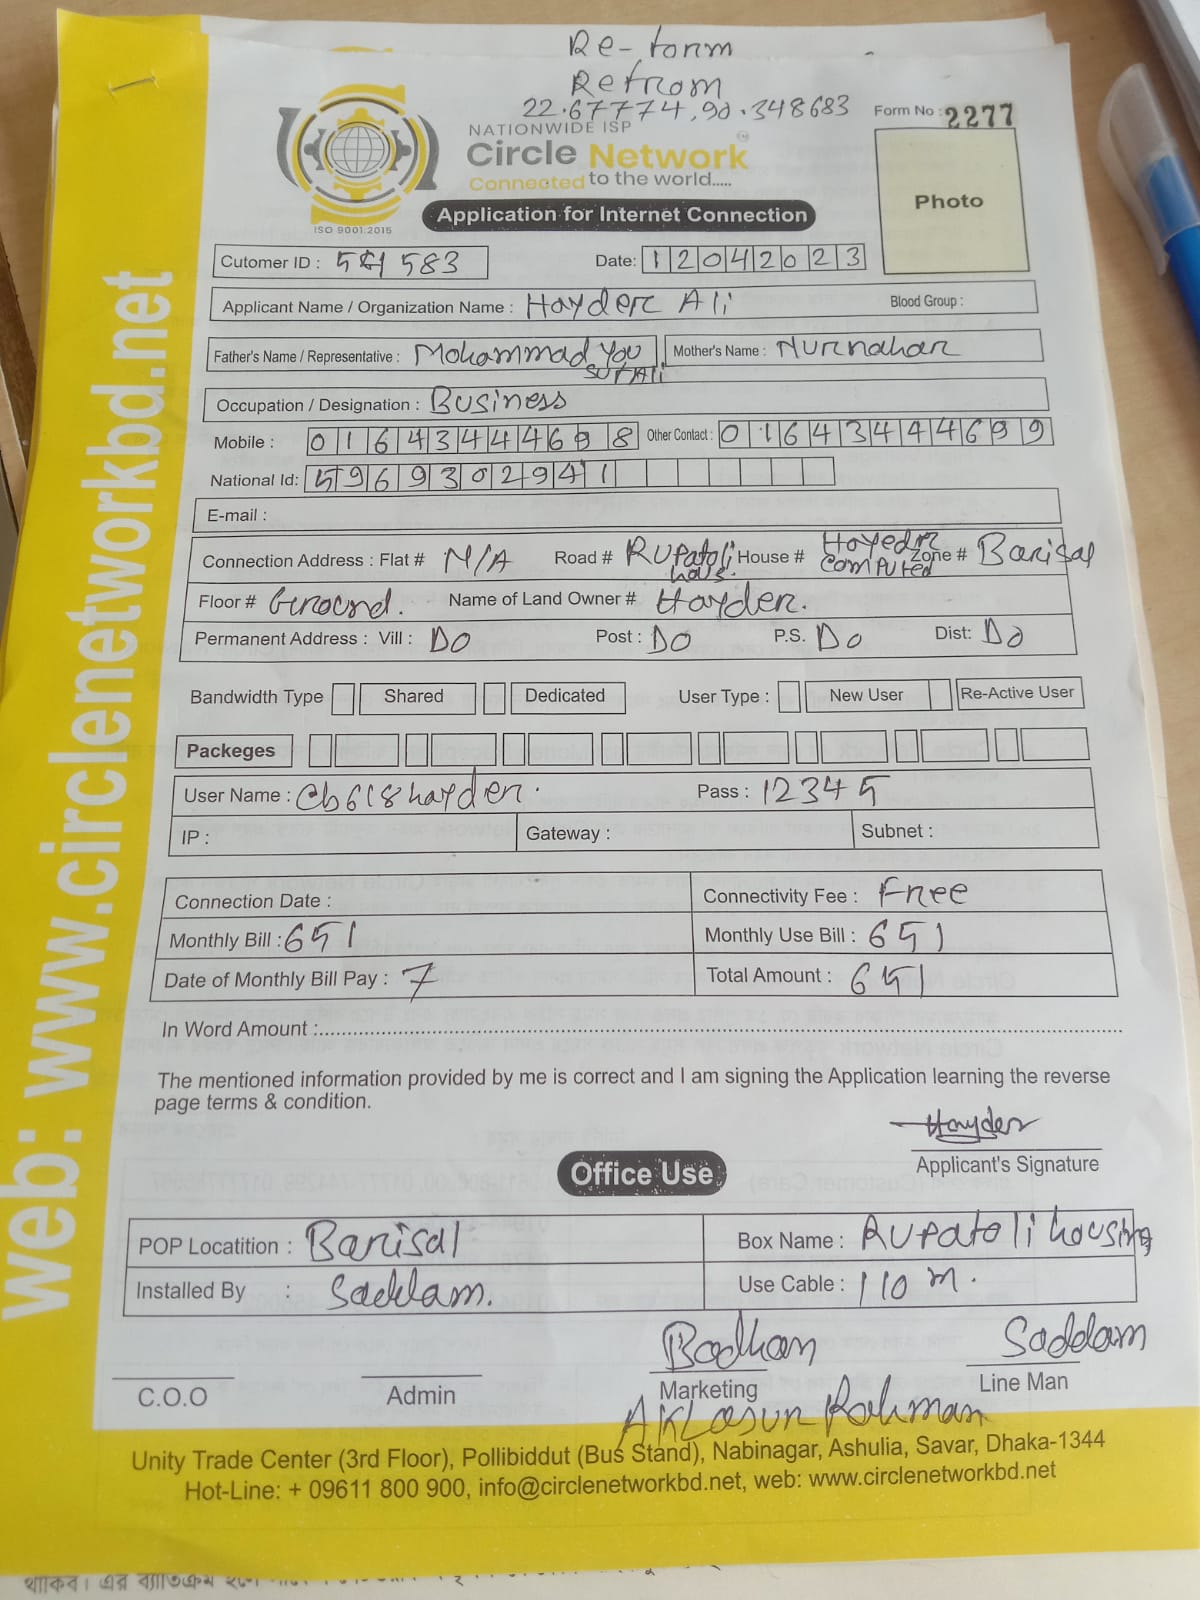 Re-form
Refrom
22.67774,90.348683
Form No : 2277
NATIONWIDE ISP
Circle Network
Connected to the world.....
ISO 9001:2015
Photo
Application for Internet Connection
Cutomer ID : 541583
Date: 12042023
Applicant Name / Organization Name : Hayder Ali
Blood Group :
Father's Name / Representative : Mohammad You
suf Ali
Mother's Name : Nurnahar
Occupation / Designation : Business
Mobile : 01643444698 Other Contact : 01643444699
National Id: 5969302941
E-mail :
Connection Address : Flat # N/A Road # Rupatoli hous. House # Hayder Computer Zone # Barisal
Floor # Ground. Name of Land Owner # Hayder.
Permanent Address : Vill : DO Post : DO P.S. DO Dist: DO
Bandwidth Type Shared Dedicated User Type : New User Re-Active User
Packeges
User Name : cb618hayder. Pass : 12345
IP : Gateway : Subnet :
Connection Date : Connectivity Fee : Free
Monthly Bill : 651 Monthly Use Bill : 651
Date of Monthly Bill Pay : 7 Total Amount : 651
In Word Amount :
The mentioned information provided by me is correct and I am signing the Application learning the reverse
page terms & condition.
Hayder
Applicant's Signature
Office Use
POP Locatition : Barisal Box Name : Rupatoli housing
Installed By : Saddam. Use Cable : 110 m.
Badhan Saddam
C.O.O Admin Marketing Line Man
Aklasur Rahman
Unity Trade Center (3rd Floor), Pollibiddut (Bus Stand), Nabinagar, Ashulia, Savar, Dhaka-1344
Hot-Line: + 09611 800 900, info@circlenetworkbd.net, web: www.circlenetworkbd.net
web: www.circlenetworkbd.net
থাকিব। এর ব্যতিক্রম হলে